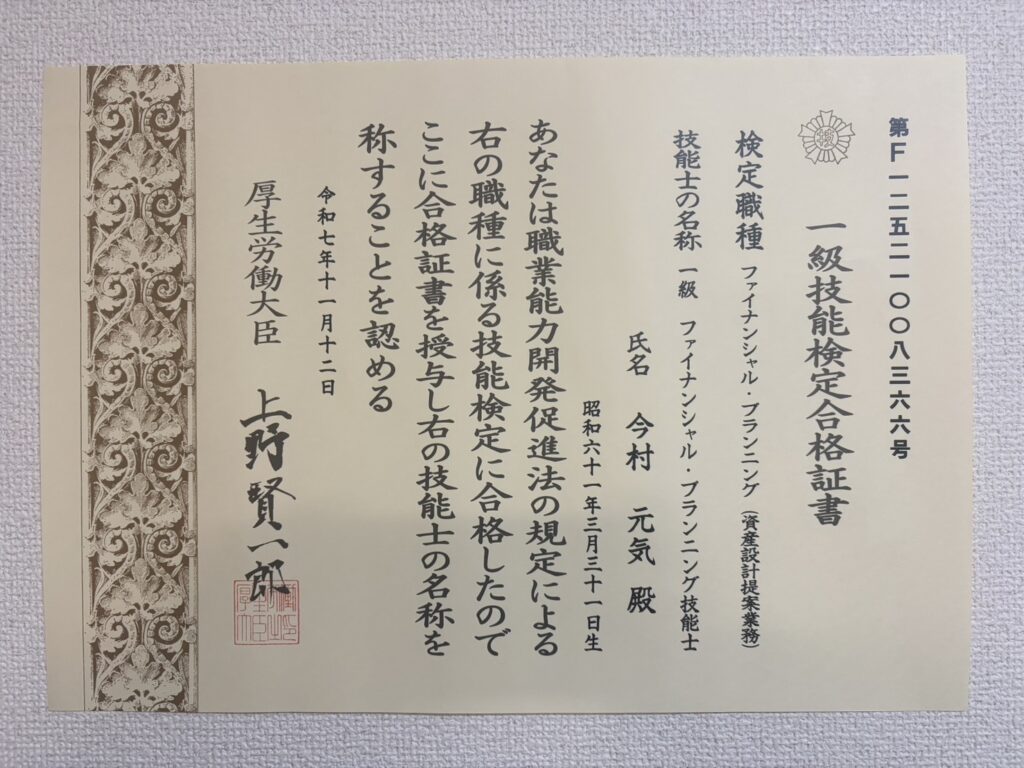 第F一二五二一〇〇八三六六号
一級技能検定合格証書
検定職種 ファイナンシャル・プランニング (資産設計提案業務)
技能士の名称 一級 ファイナンシャル・プランニング技能士
氏名 今村 元気 殿
昭和六十一年三月三十一日生
あなたは職業能力開発促進法の規定による
右の職種に係る技能検定に合格したので
ここに合格証書を授与し右の技能士の名称を
称することを認める
令和七年十一月十二日
厚生労働大臣 上野賢一郎